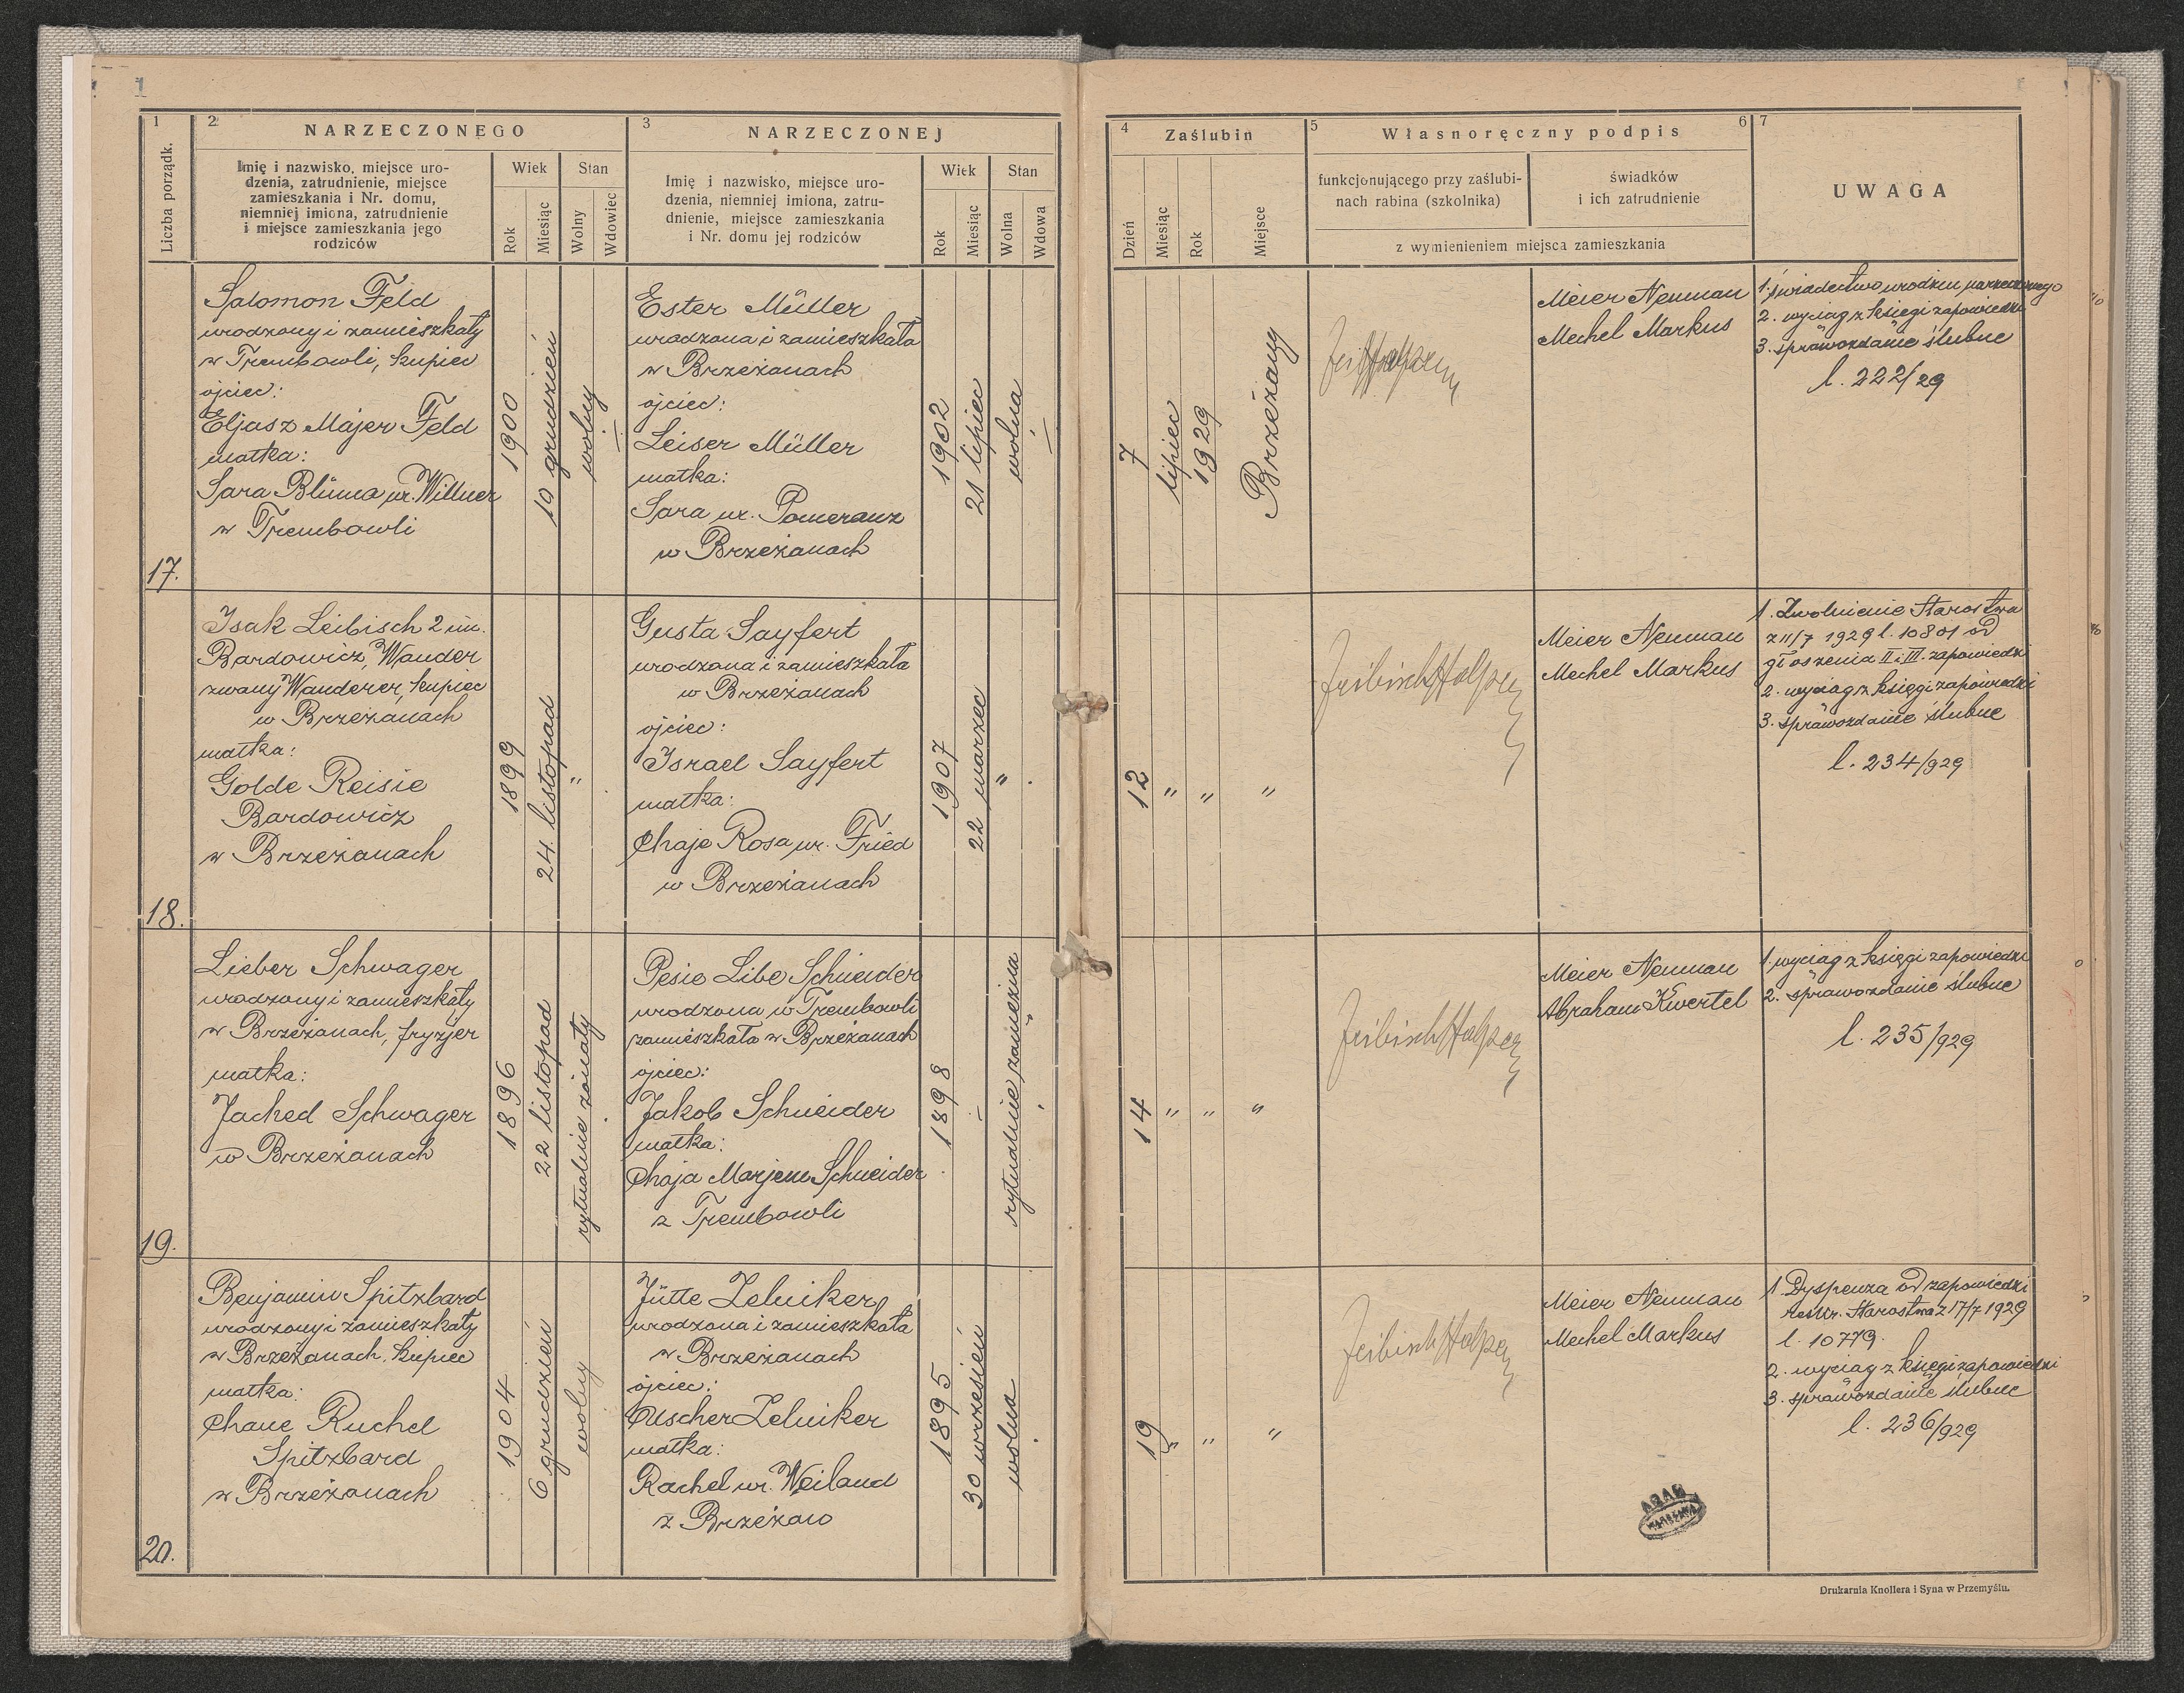 1
2
NARZECZONEGO
3
NARZECZONEJ
Liczba porządk.
Imię i nazwisko, miejsce uro-
dzenia, zatrudnienie, miejsce
zamieszkania i Nr. domu,
niemniej imiona, zatrudnienie
i miejsce zamieszkania jego
rodziców
Wiek
Stan
Rok
Miesiąc
Wolny
Wdowiec
Imię i nazwisko, miejsce uro-
dzenia, niemniej imiona, zatru-
dnienie, miejsce zamieszkania
i Nr. domu jej rodziców
Wiek
Stan
Rok
Miesiąc
Wolna
Wdowa
4
Zaślubin
5
Własnoręczny podpis
6
7
Dzień
Miesiąc
Rok
Miejsce
funkcjonującego przy zaślubi-
nach rabina (szkolnika)
świadków
i ich zatrudnienie
z wymienieniem miejsca zamieszkania
UWAGA
17.
Salomon Feld
urodzony i zamieszkały
w Trembowli, kupiec
ojciec:
Eljasz Majer Feld
matka:
Sara Blüma ur. Willner
w Trembowli
1900
10 grudzień
wolny
Ester Müller
urodzona i zamieszkała
w Brzeżanach
ojciec:
Leiser Müller
matka:
Sara ur. Pomeranz
w Brzeżanach
1902
21 lipiec
wolna
7
lipiec
1929
Brzeżany
Meier Neuman
Mechel Markus
1. świadectwo urodzin narzeczonego
2. wyciąg z księgi zapowiedzi
3. sprawozdanie ślubne
l. 222/29
18.
Isak Leibisch 2 im.
Bardowicz, Wander
zwany Wanderer, kupiec
w Brzeżanach
matka:
Golde Reisie
Bardowicz
w Brzeżanach
1899
24. listopad
"
Gusta Sayfert
urodzona i zamieszkała
w Brzeżanach
ojciec:
Israel Sayfert
matka:
Chaje Rosa ur. Fried
w Brzeżanach
1907
22 marzec
"
12
"
"
"
Leibisch Halpern
Meier Neuman
Mechel Markus
1. Zwolnienie Starostwa
z 11/7 1929 l. 10801 od
głoszenia II i III. zapowiedzi
2. wyciąg z księgi zapowiedzi
3. sprawozdanie ślubne
l. 234/929
19.
Lieber Schwager
urodzony i zamieszkały
w Brzeżanach, fryzjer
matka:
Jached Schwager
w Brzeżanach
1896
22 listopad
rytualnie żonaty
Pesie Libe Schneider
urodzona w Trembowli
zamieszkała w Brzeżanach
ojciec:
Jakob Schneider
matka:
Chaja Marjem Schneider
z Trembowli
1898
rytualnie zamężna
14
"
"
"
Leibisch Halpern
Meier Neuman
Abraham Kwertel
1. wyciąg z księgi zapowiedzi
2. sprawozdanie ślubne
l. 235/929
20.
Benjamin Spitzbard
urodzony i zamieszkały
w Brzeżanach, kupiec
matka:
Chane Ruchel
Spitzbard
w Brzeżanach
1904
6 grudzień
wolny
Jütte Zelniker
urodzona i zamieszkała
w Brzeżanach
ojciec:
Uscher Zelniker
matka:
Rachel ur. Weiland
z Brzeżan
1895
30 wrzesień
wolna
19
"
"
"
Leibisch Halpern
Meier Neuman
Mechel Markus
1. Dyspenza od zapowiedzi
Starostwa z 17/7 1929
l. 10779.
2. wyciąg z księgi zapowiedzi
3. sprawozdanie ślubne
l. 236/929
WARSZAWA
Drukarnia Knollera i Syna w Przemyślu.